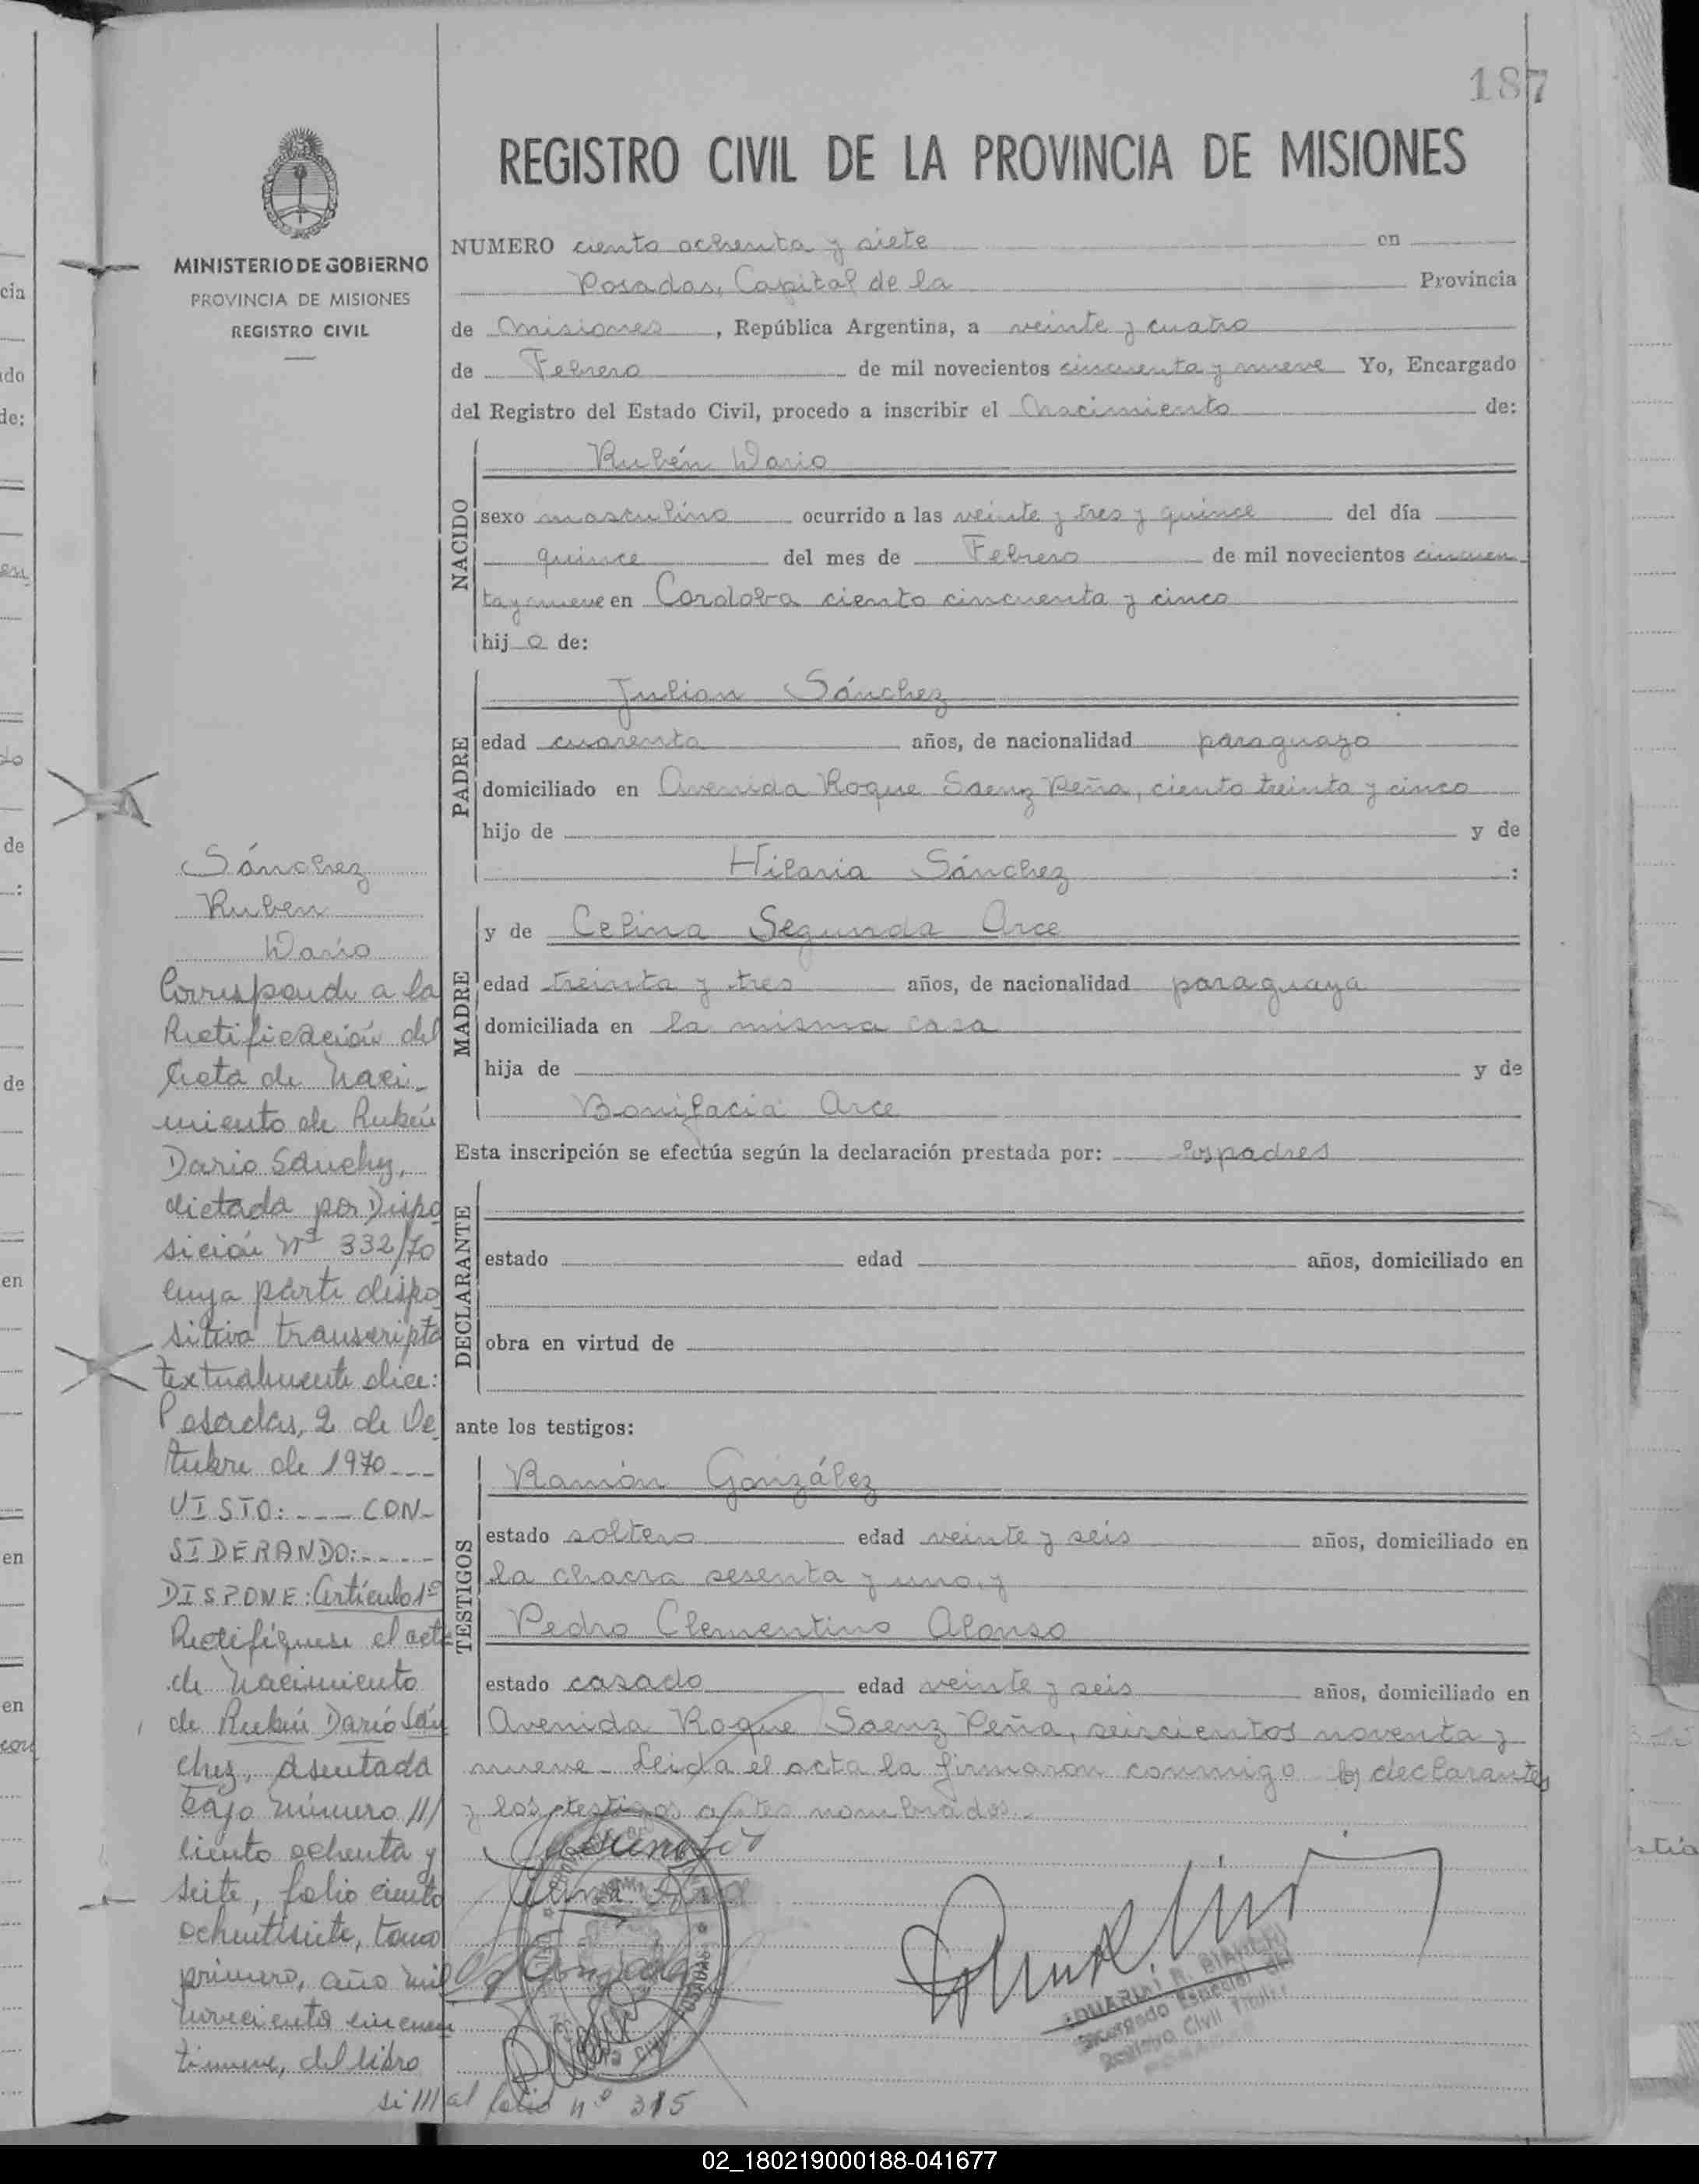 187
REGISTRO CIVIL DE LA PROVINCIA DE MISIONES
MINISTERIO DE GOBIERNO
PROVINCIA DE MISIONES
REGISTRO CIVIL
NUMERO ciento ochenta y siete en
Posadas, Capital de la Provincia
de Misiones, República Argentina, a veinte y cuatro
de Febrero de mil novecientos cincuenta y nueve Yo, Encargado
del Registro del Estado Civil, procedo a inscribir el Nacimiento de:
NACIDO
Rubén Dario
sexo masculino ocurrido a las veinte y tres y quince del día
quince del mes de Febrero de mil novecientos cincuen
ta y nueve en Cordoba ciento cincuenta y cinco
hijo de:
PADRE
Julian Sánchez
edad cuarenta años, de nacionalidad paraguayo
domiciliado en Avenida Roque Saenz Peña, ciento treinta y cinco
hijo de y de
Hilaria Sánchez :
MADRE
y de Celina Segunda Arce
edad treinta y tres años, de nacionalidad paraguaya
domiciliada en la misma casa
hija de y de
Bonifacia Arce
Esta inscripción se efectúa según la declaración prestada por: los padres
DECLARANTE
estado edad años, domiciliado en
obra en virtud de
ante los testigos:
TESTIGOS
Ramón González
estado soltero edad veinte y seis años, domiciliado en
la chacra sesenta y uno, y
Pedro Clementino Alonso
estado casado edad veinte y seis años, domiciliado en
Avenida Roque Saenz Peña, seiscientos noventa y
nueve - Leida el acta la firmaron conmigo los declarantes
y los testigos antes nombrados.
Sánchez
Ruben
Dario
Corresponde a la
Rectificación del
Acta de Naci-
miento de Rubén
Dario Sánchez,
dictada por Dispo
sición Nº 332/70
cuya parte dispo
sitiva transcripta
textualmente dice:
Posadas, 2 de Oc
tubre de 1970 ---
VISTO: --- CON-
SIDERANDO: -----
DISPONE: Artículo 1º
Rectifíquese el acta
de Nacimiento
de Rubén Darío Sán
chez, asentada
bajo número ///
ciento ochenta y
seite, folio ciento
ochentisiete, tomo
primero, año mil
novecientos cincuen
tinueve, del libro
si /// al folio nº 315
EDUARDO R. BIANCHI
Encargado Especial del
Registro Civil Titular
02_180219000188-041677